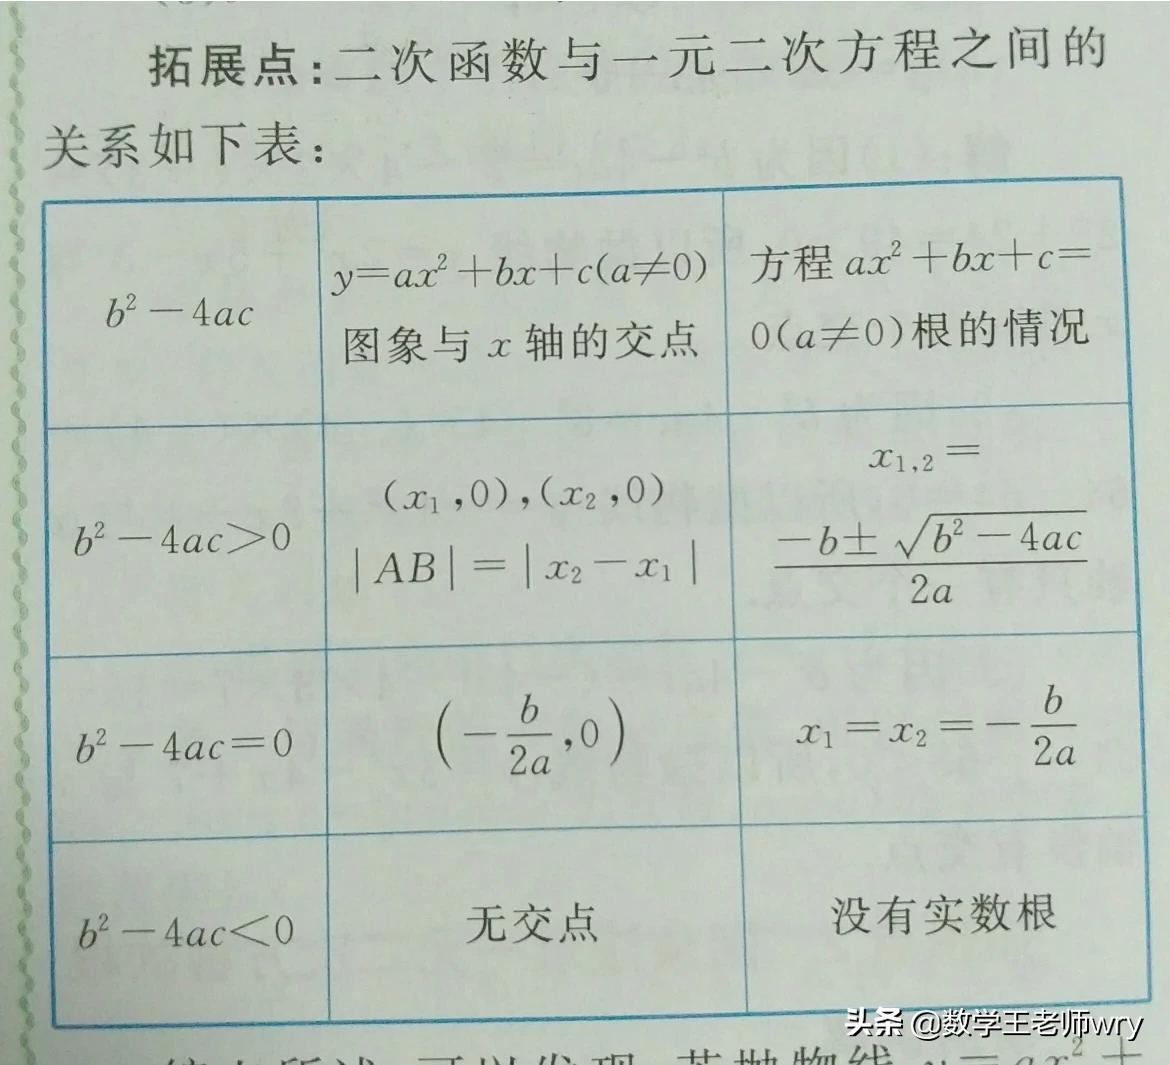 拓展点:二次函数与一元二次方程之间的
关系如下表:
b²-4ac
y=ax²+bx+c(a≠0)
图象与 x 轴的交点
方程 ax²+bx+c=
0(a≠0)根的情况
b²-4ac>0
(x₁,0),(x₂,0)
|AB|=|x₂-x₁|
x₁,₂=
-b±√(b²-4ac)
2a
b²-4ac=0
(-b/2a,0)
x₁=x₂=-b/2a
b²-4ac<0
无交点
没有实数根
头条 @数学王老师wry